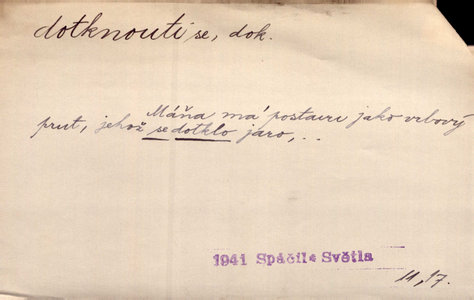 dotknouti se, dok.
Máňa má postavu jako vrbový
prut, jehož se dotklo jaro,..
1941 Spáčil: Světla
11,17.